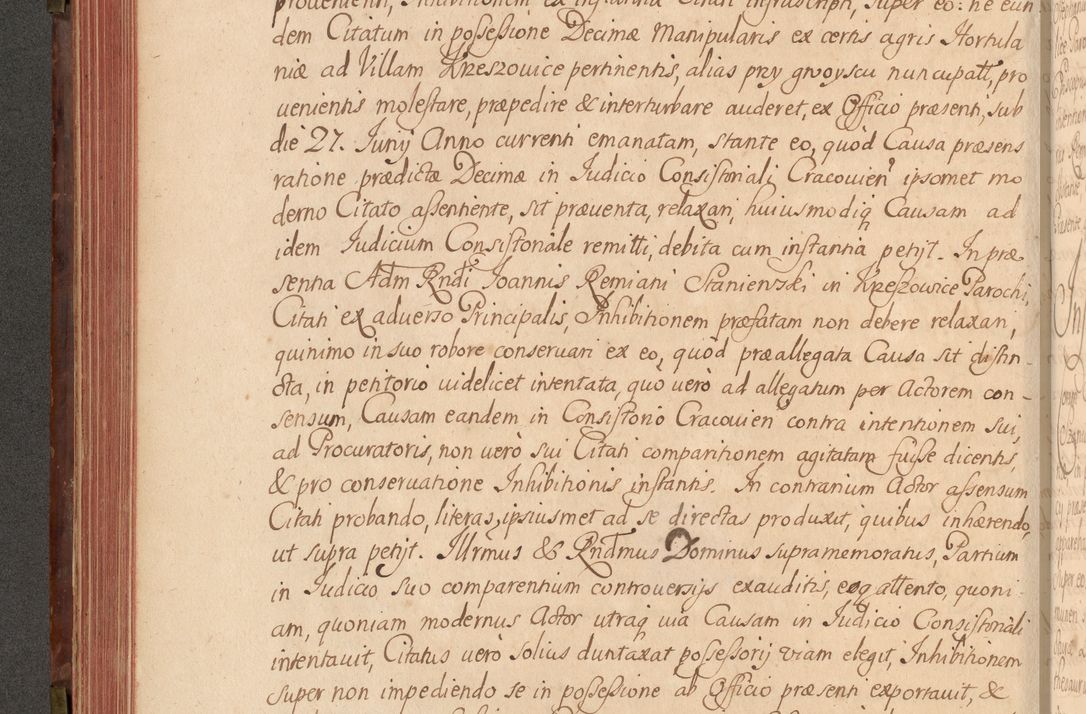 provenienti, Inhibitionem ex instantia Citati infrascripti, super eo: ne eun
dem Citatum in possessione Decimæ Manipularis ex certis agris Hortula
niæ ad Villam Krzeszovice pertinentis, alias przy gruoyscu nuncupatt, pro
uenientis molestare, præpedire & interturbare auderet, ex Officio præsenti, sub
die 27. Iunij Anno currenti emanatam, stante eo, quòd Causa præsens
ratione prædictæ Decimæ in Iudicio Consistoriali Cracouien ipsomet mo
derno Citato assentiente, sit præuenta, relaxari, huiusmodiq Causam ad
idem Iudicium Consistoriale remitti, debita cum instantia petijt. In præ
sentia Adm Rndi Ioannis Remiani Stanienski in Krzeszowice Parochi,
Citati ex aduerso Principalis, Inhibitionem præfatam non debere relaxari,
quinimo in suo robore conseruari ex eo, quòd præallegata Causa sit distin
cta, in petitorio uidelicet intentata, quò uerò ad allegatum per Actorem con-
sensum, Causam eandem in Consistorio Cracouien contra intentionem sui,
ad Procuratoris, non uerò sui Citati comparitionem agitatam fuisse dicentis,
& pro conseruatione Inhibitionis instantis. In contrarium Actor assensum
Citati probando, literas, ipsiusmet ad se directas produxit, quibus inhærendo,
ut supra petijt. Illrmus & Rndmus Dominus supramemoratus, Partium
in Iudicio suo comparentium controuersijs exauditis, eoq attento, quoni-
am, quoniam modernus Actor utraq uia Causam in Iudicio Consistoriali
intentauit, Citatus uerò solius duntaxat possessorij viam elegit, Inhibitionem
super non impediendo se in possessione ab Officio præsenti exportauit, &